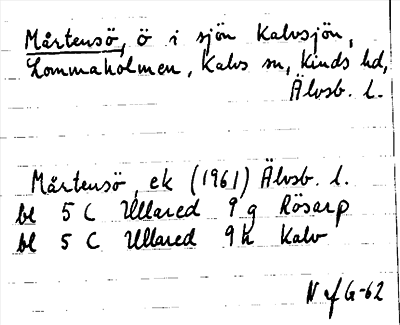 Mårtensö, ö i sjön Kalvsjön,
Lommaholmen, Kalvs sn, Kinds hd,
Älvsb. l.
Mårtensö, ek (1961) Älvsb. l.
bl 5 C Ullared 9 g Rösarp
bl 5 C Ullared 9 h Kalv
N of G-62